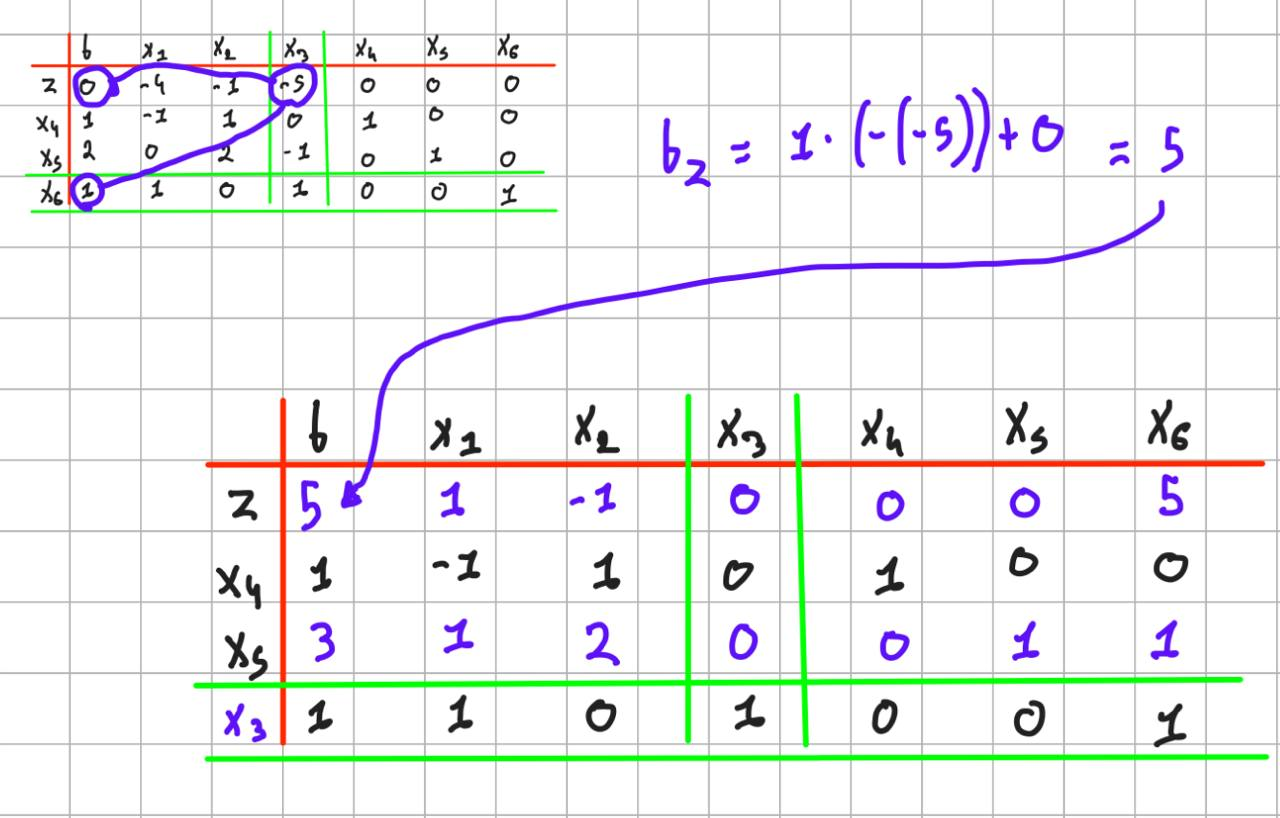 b x₁ x₂ x₃ x₄ x₅ x₆
z 0 -4 -1 -5 0 0 0
x₄ 1 -1 1 0 1 0 0
x₅ 2 0 2 -1 0 1 0
x₆ 1 1 0 1 0 0 1
b_z = 1·(-(-5))+0 = 5
b x₁ x₂ x₃ x₄ x₅ x₆
z 5 1 -1 0 0 0 5
x₄ 1 -1 1 0 1 0 0
x₅ 3 1 2 0 0 1 1
x₃ 1 1 0 1 0 0 1